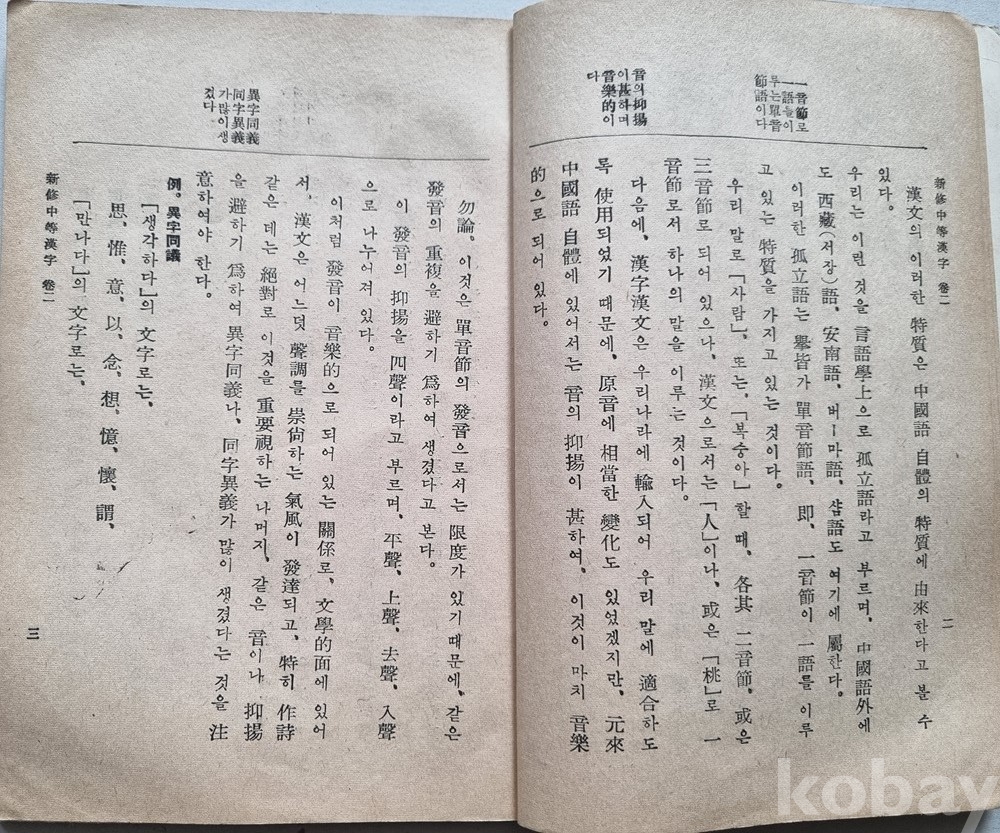 一音節로
一語들이
루는單音
節語이다
音의抑揚
이甚하며
音樂的이
다
新修中等漢字 卷二
漢文의 이러한 特質은 中國語 自體의 特質에 由來한다고 볼 수
있다。
우리는 이런 것을 言語學上으로 孤立語라고 부르며、中國語外에
도 西藏(서장)語、安南語、버ー마語、샴語도 여기에 屬한다。
이러한 孤立語는 擧皆가 單音節語、即、一音節이 一語를 이루
고 있는 特質을 가지고 있는 것이다。
우리 말로「사람」、또는、「복숭아」할 때、各其 二音節、或은
三音節로 되어 있으나、漢文으로서는「人」이나、或은「桃」로 一
音節로서 하나의 말을 이루는 것이다。
다음에、漢字漢文은 우리나라에 輸入되어 우리 말에 適合하도
록 使用되었기 때문에、原音에 相當한 變化도 있었겠지만、元來
中國語 自體에 있어서는 音의 抑揚이 甚하여、이것이 마치 音樂
的으로 되어 있다。
二
異字同義
同字異義
가많이생
겼다
勿論、이것은 單音節의 發音으로서는 限度가 있기 때문에、같은
發音의 重複을 避하기 爲하여 생겼다고 본다。
이 發音의 抑揚을 四聲이라고 부르며、平聲、上聲、去聲、入聲
으로 나누어져 있다。
이처럼 發音이 音樂的으로 되어 있는 關係로、文學的面에 있어
서、漢文은 어느덧 聲調를 崇尙하는 氣風이 發達되고、特히 作詩
같은 데는 絕對로 이것을 重要視하는 나머지、같은 音이나 抑揚
을 避하기 爲하여 異字同義나、同字異義가 많이 생겼다는 것을 注
意하여야 한다。
例。異字同議
「생각하다」의 文字로는、
思、惟、意、以、念、想、憶、懷、謂、
「만나다」의 文字로는、
新修中等漢字 卷二
三
kobay